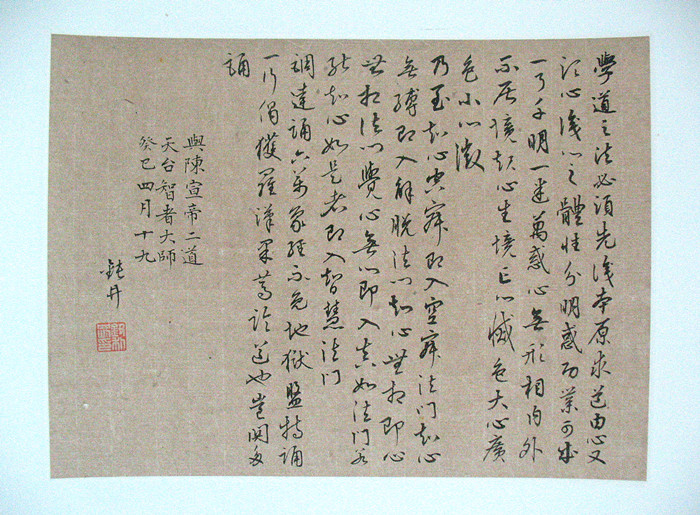 學道之法必須先識本原求道由心又
須心識心之體性分明惑功業可成
一了千明一迷萬惑心無形相內外
不居境起心生境亡心滅色大心廣
色小心微
乃至知心空寂即入空寂法門知心
無縛即入解脫法門知心無相即心
無相法門覺心無心即入真如法門若
能知心如是者即入智慧法門
調達誦六萬象經不免地獄盤特誦
一行偈獲羅漢果蓋論道也豈関多
誦
與陳宣帝二道
天台智者大師
癸巳四月十九